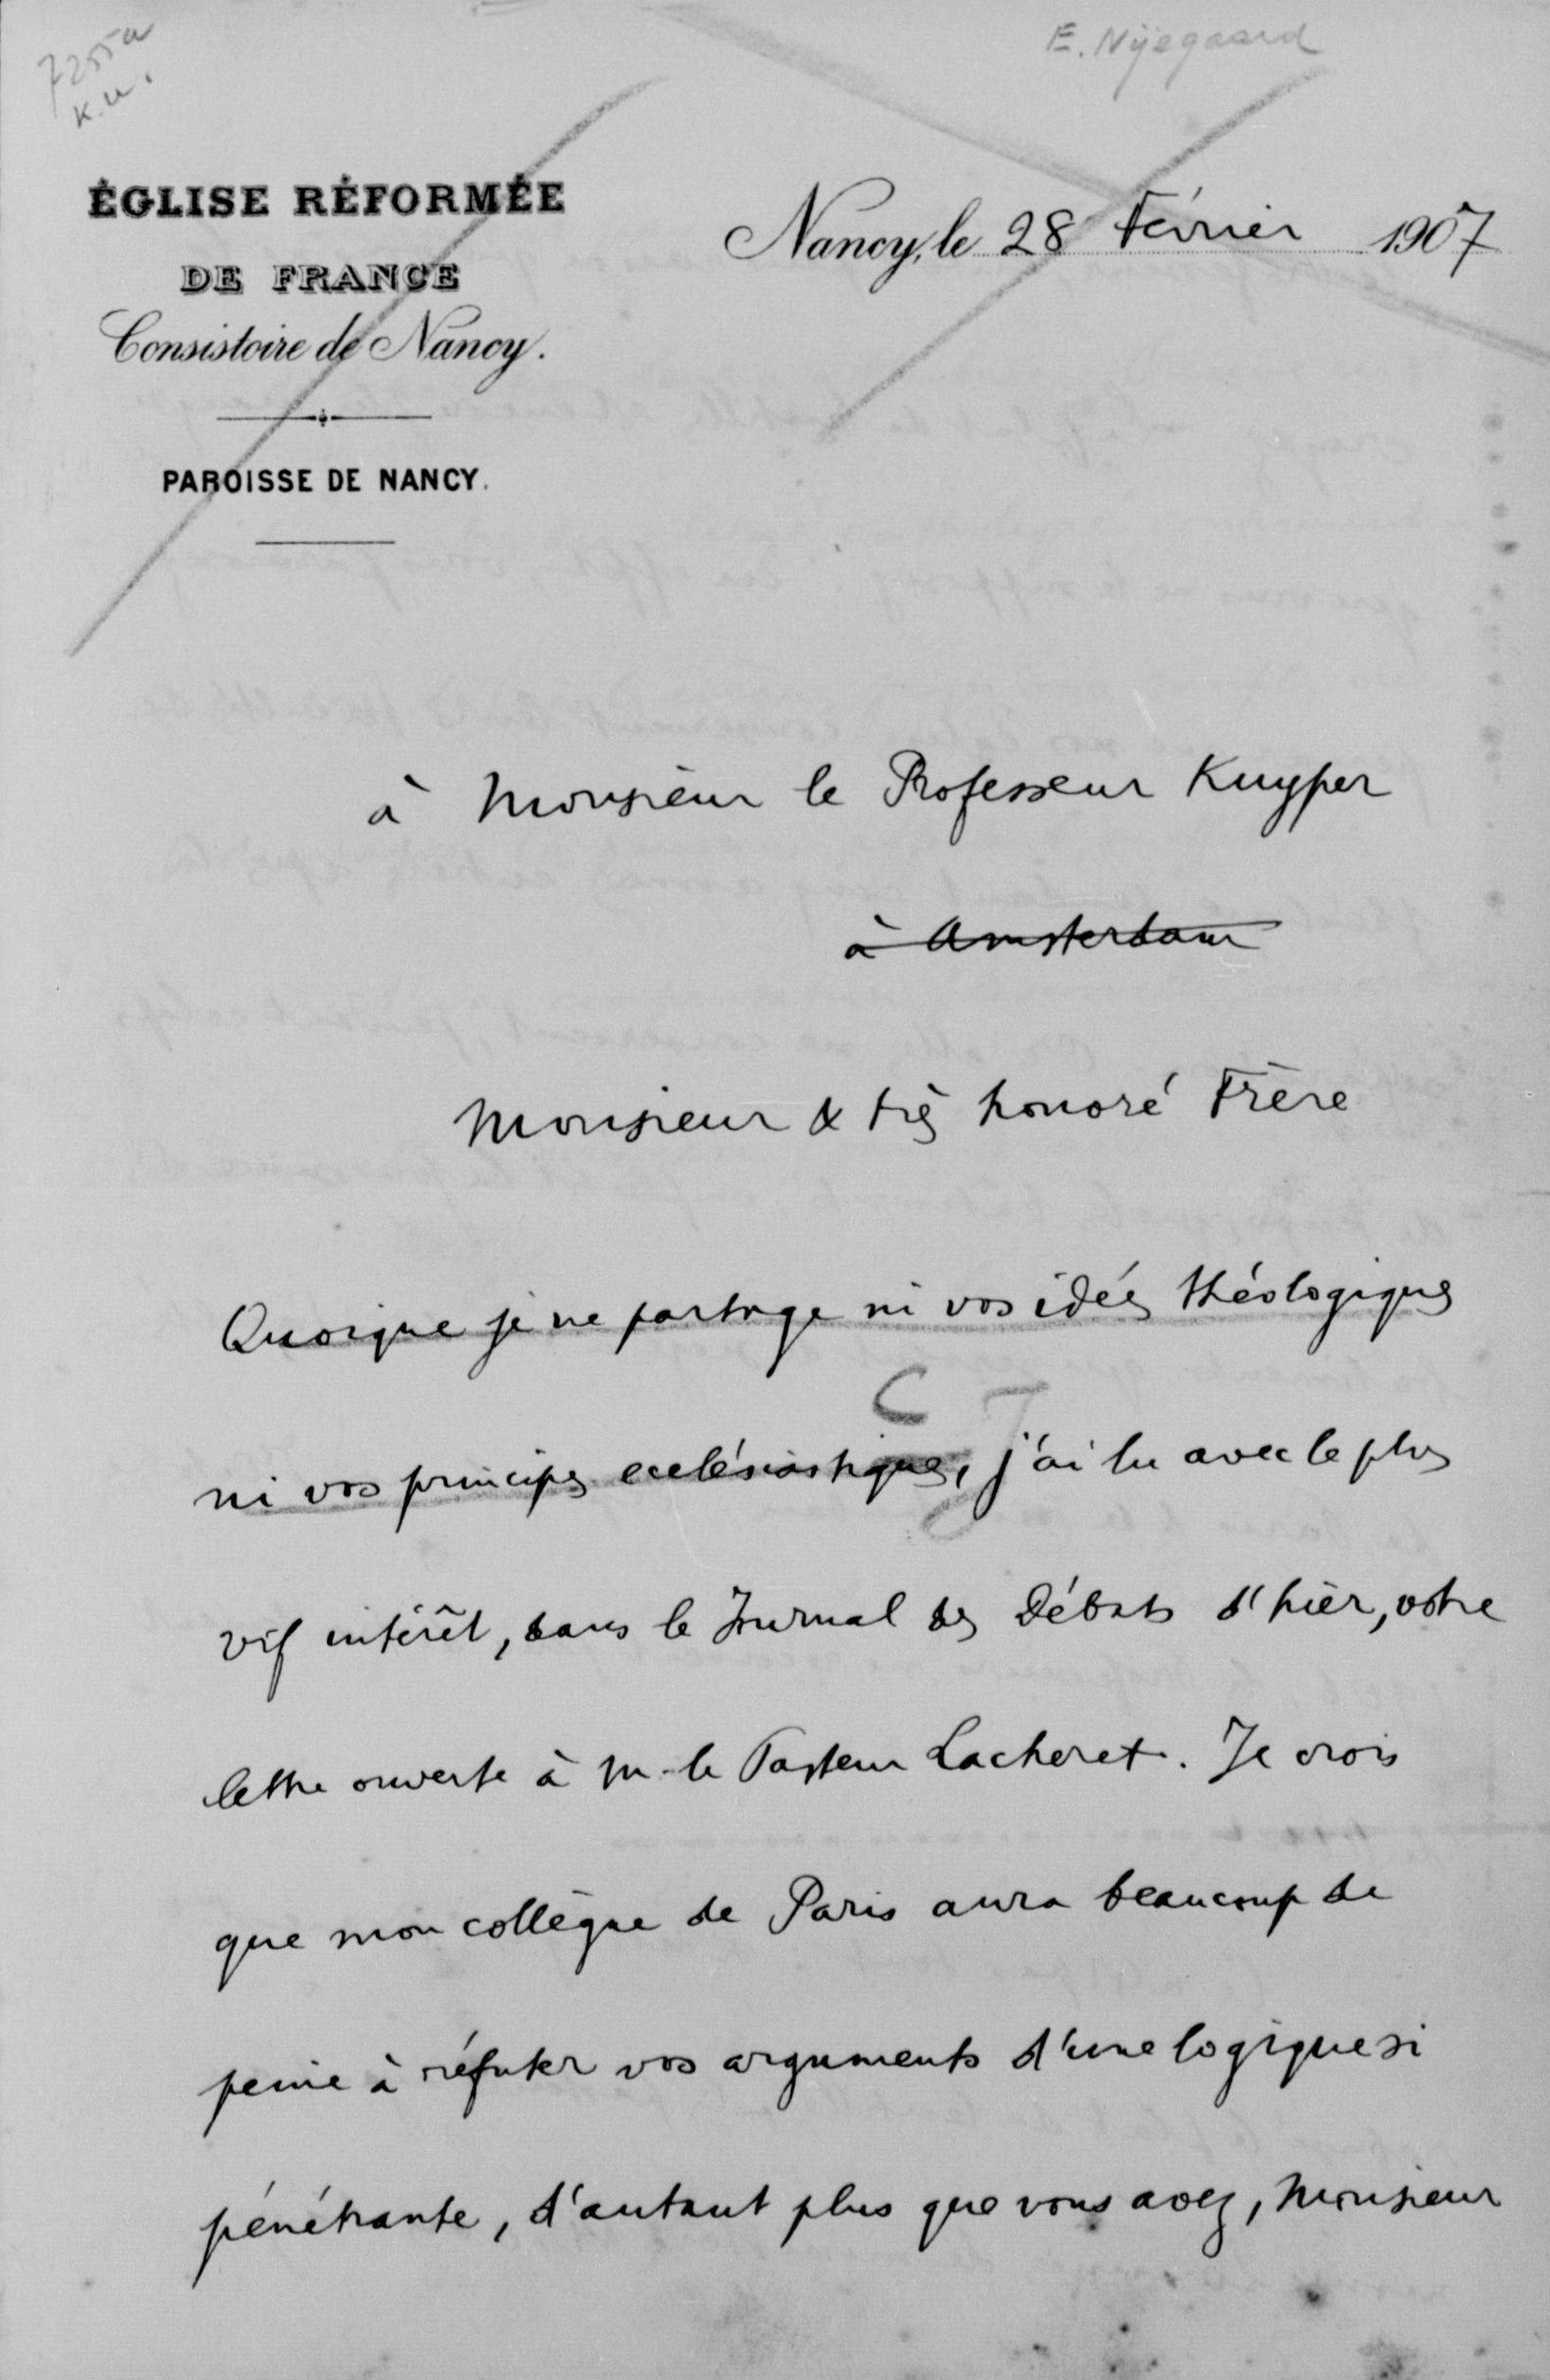 7255a
K.U.
E. Nyegaard
ÉGLISE RÉFORMÉE
DE FRANCE
Consistoire de Nancy.
PAROISSE DE NANCY.
Nancy, le 28 Février 1907
à Monsieur le Professeur Kuyper
à Amsterdam
Monsieur & très honoré Frère
Quoique je ne partage ni vos idées théologiques
ni vos principes ecclésiastiques, j'ai lu avec le plus
vif intérêt, dans le Journal des Débats d'hier, votre
lettre ouverte à M. le Pasteur Lacheret. Je crois
que mon collègue de Paris aura beaucoup de
peine à réfuter vos arguments d'une logique si
pénétrante, d'autant plus que vous avez, Monsieur